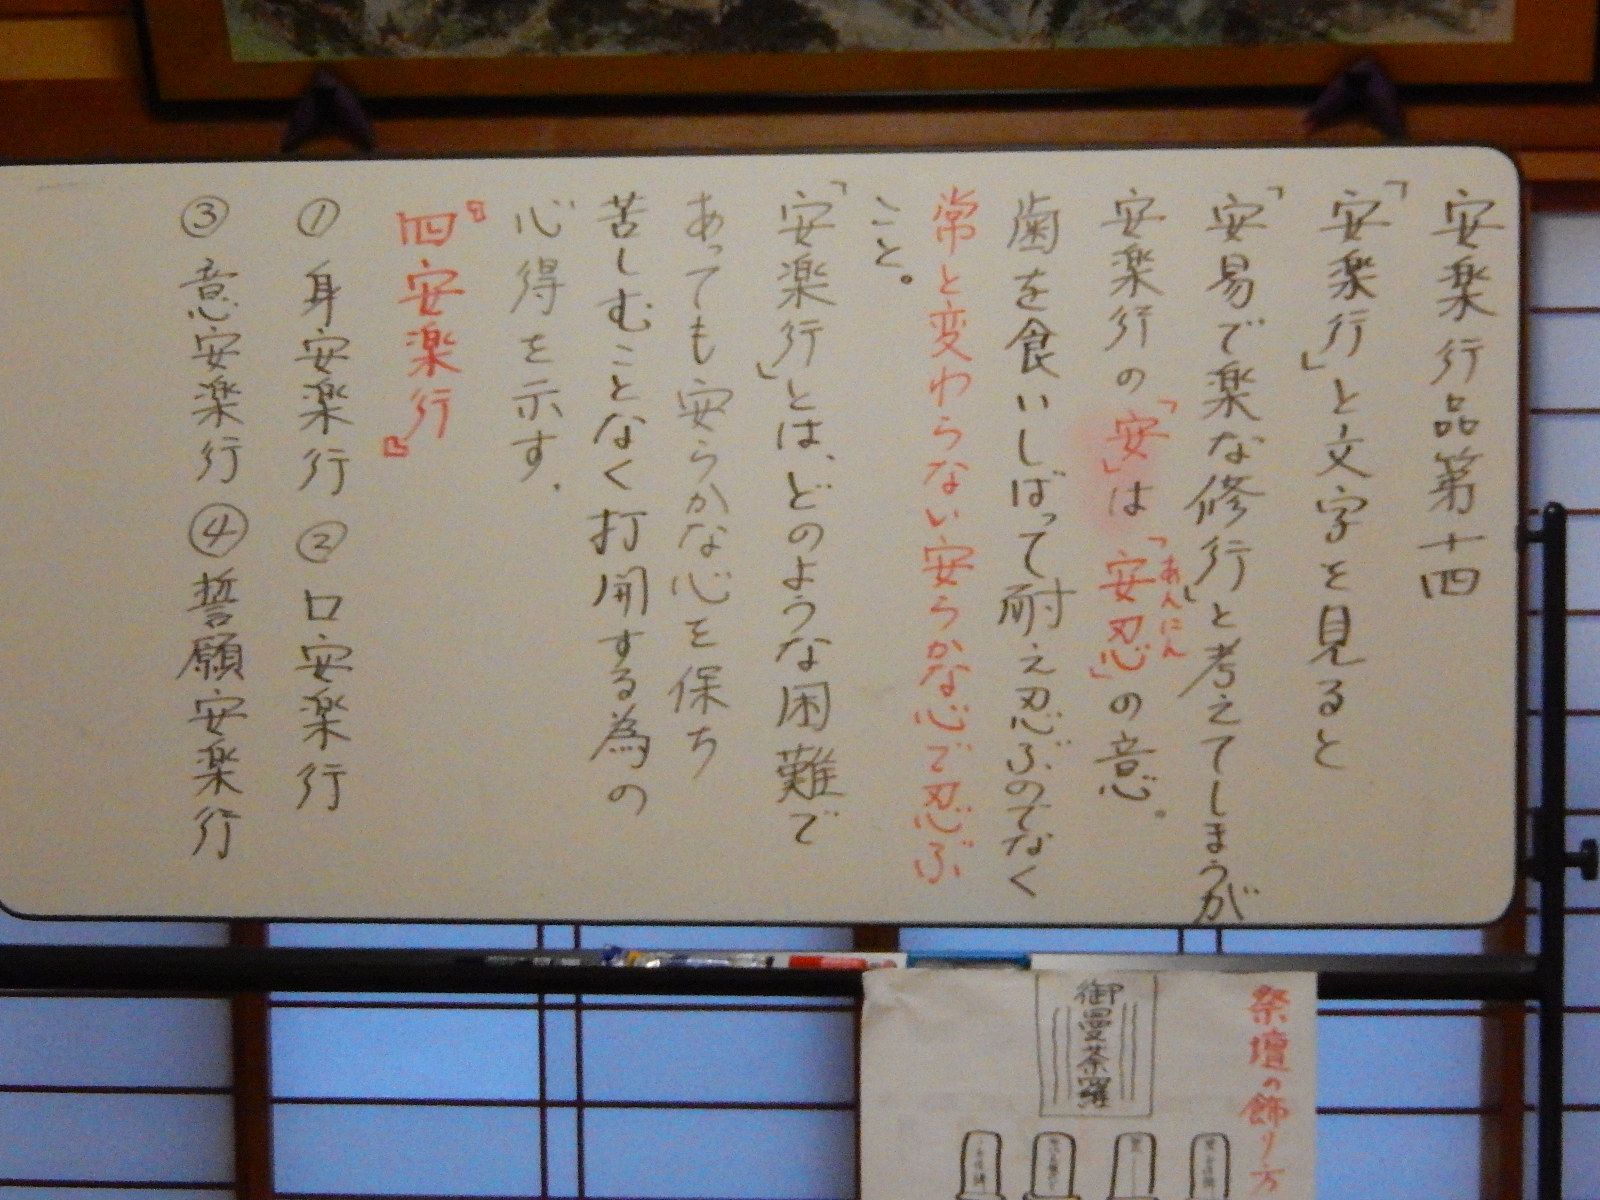 安楽行品第十四
「安楽行」と文字を見ると
「安易で楽な修行」と考えてしまうが
安楽行の「安」は「安忍」の意。
あんにん
歯を食いしばって耐え忍ぶのでなく
常と変わらない安らかな心で忍ぶ
こと。
「安楽行」とは、どのような困難で
あっても安らかな心を保ち
苦しむことなく打開する為の
心得を示す.
『四安楽行』
① 身安楽行 ② 口安楽行
③ 意安楽行 ④ 誓願安楽行
祭壇の飾り方
御曼荼羅